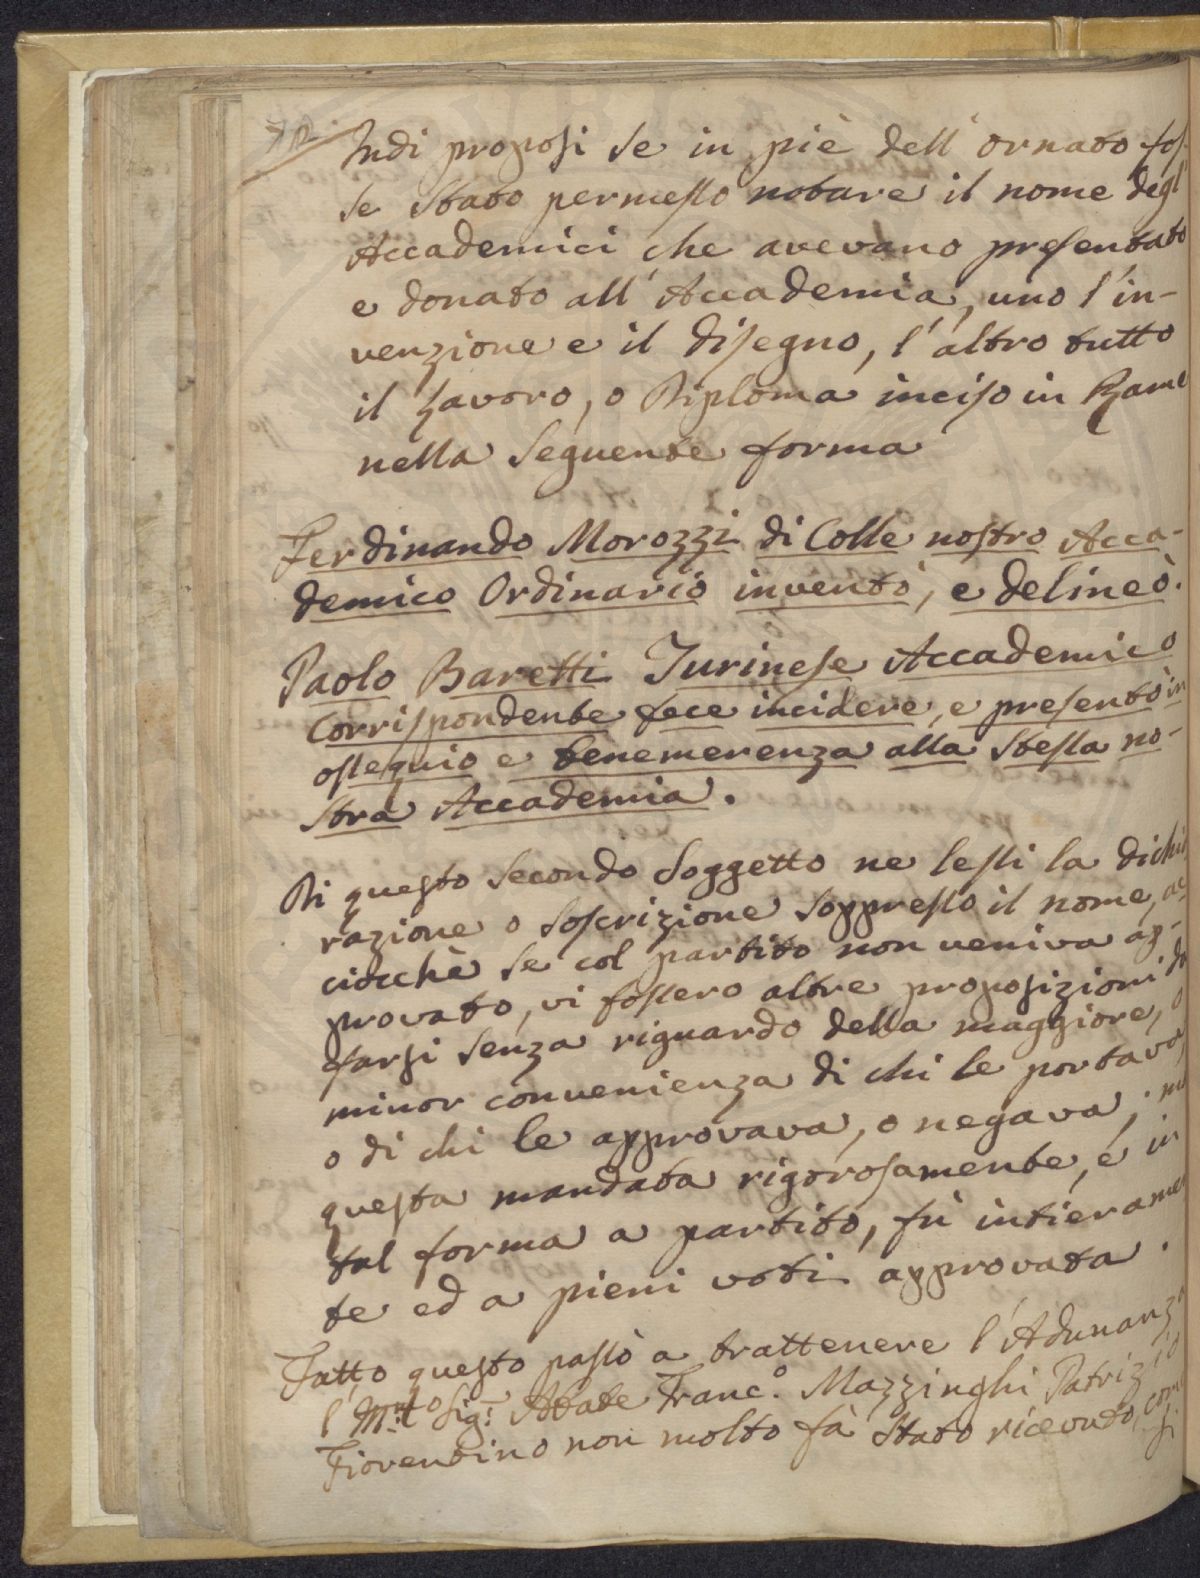 Indi proposi se in piè dell'ornato fos-
se stato permesso notare il nome degl'
Accademici che avevano presentato
e donato all'Accademia, uno l'in-
venzione e il disegno, l'altro tutto
il lavoro, o Diploma inciso in Rame
nella seguente forma
Ferdinando Morozzi di Colle nostro Acca-
demico Ordinario inventò, e delineò.
Paolo Baretti Turinese Accademico
Corrispondente fece incidere, e presentò in
ossequio e benemerenza alla stessa no-
stra Accademia.
Di questo secondo soggetto ne lessi la dichia
razione o soscrizione soppresso il nome, ac
ciocchè se col partito non veniva ap-
provato, vi fossero altre proposizioni da
farsi senza riguardo della maggiore, o
minor convenienza di chi le portava,
o di chi le approvava, o negava; ma
questa mandata rigorosamente, e in
tal forma a partito, fù intieramen
te ed a pieni voti approvata.
Fatto questo passò a trattenere l'Adunanza
l' Sig.r Abate Franc.o Mazzinghi Patrizio
Fiorentino non molto fà stato ricevuto, come
si